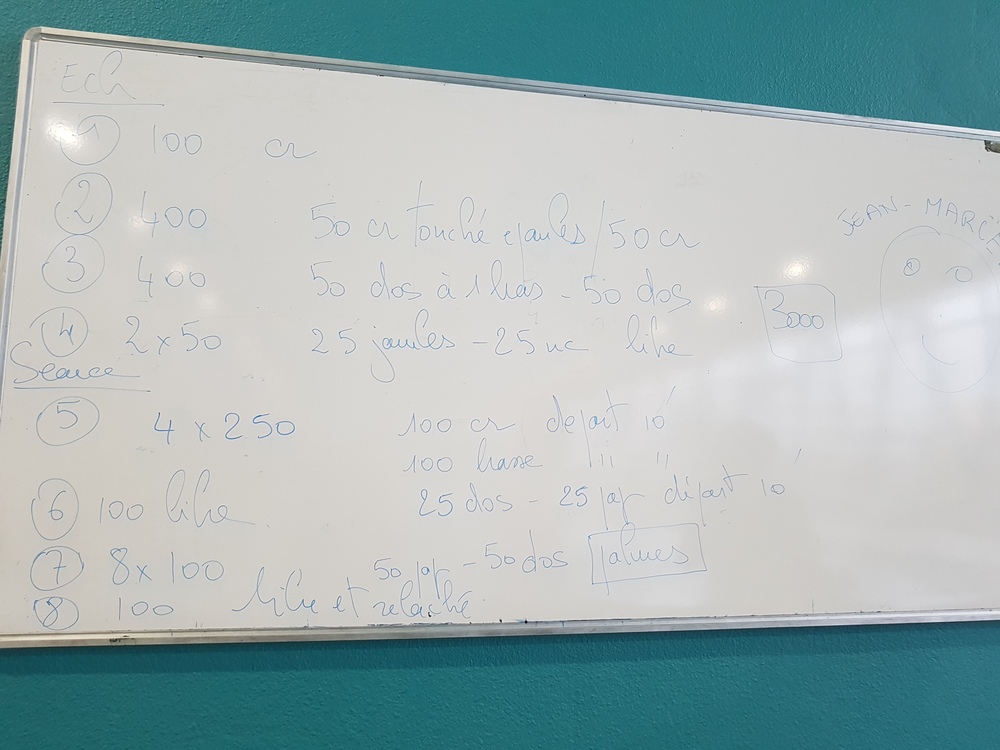 Ech
1 100 cr
2 400 50 cr touché epaules / 50 cr
JEAN-MARC
3 400 50 dos à 1 bras - 50 dos
3000
4 2 x 50 25 - 25 nc libre
Séance
5 4 x 250 100 cr depart 10'
100 brasse " "
25 dos - 25 pap départ 10'
6 100 libre
7 8 x 100 50 pap - 50 dos palmes
8 100 libre et relaché